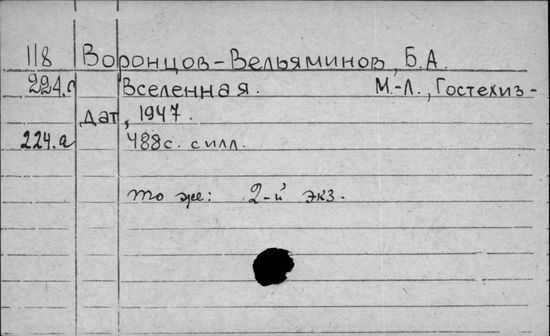 118 Воронцов-Вельяминов, Б.А.
224.г Вселенная. М.-Л., Гостехиз-
дат, 1947.
224.а 488с. с илл.
то же: 2-й экз.